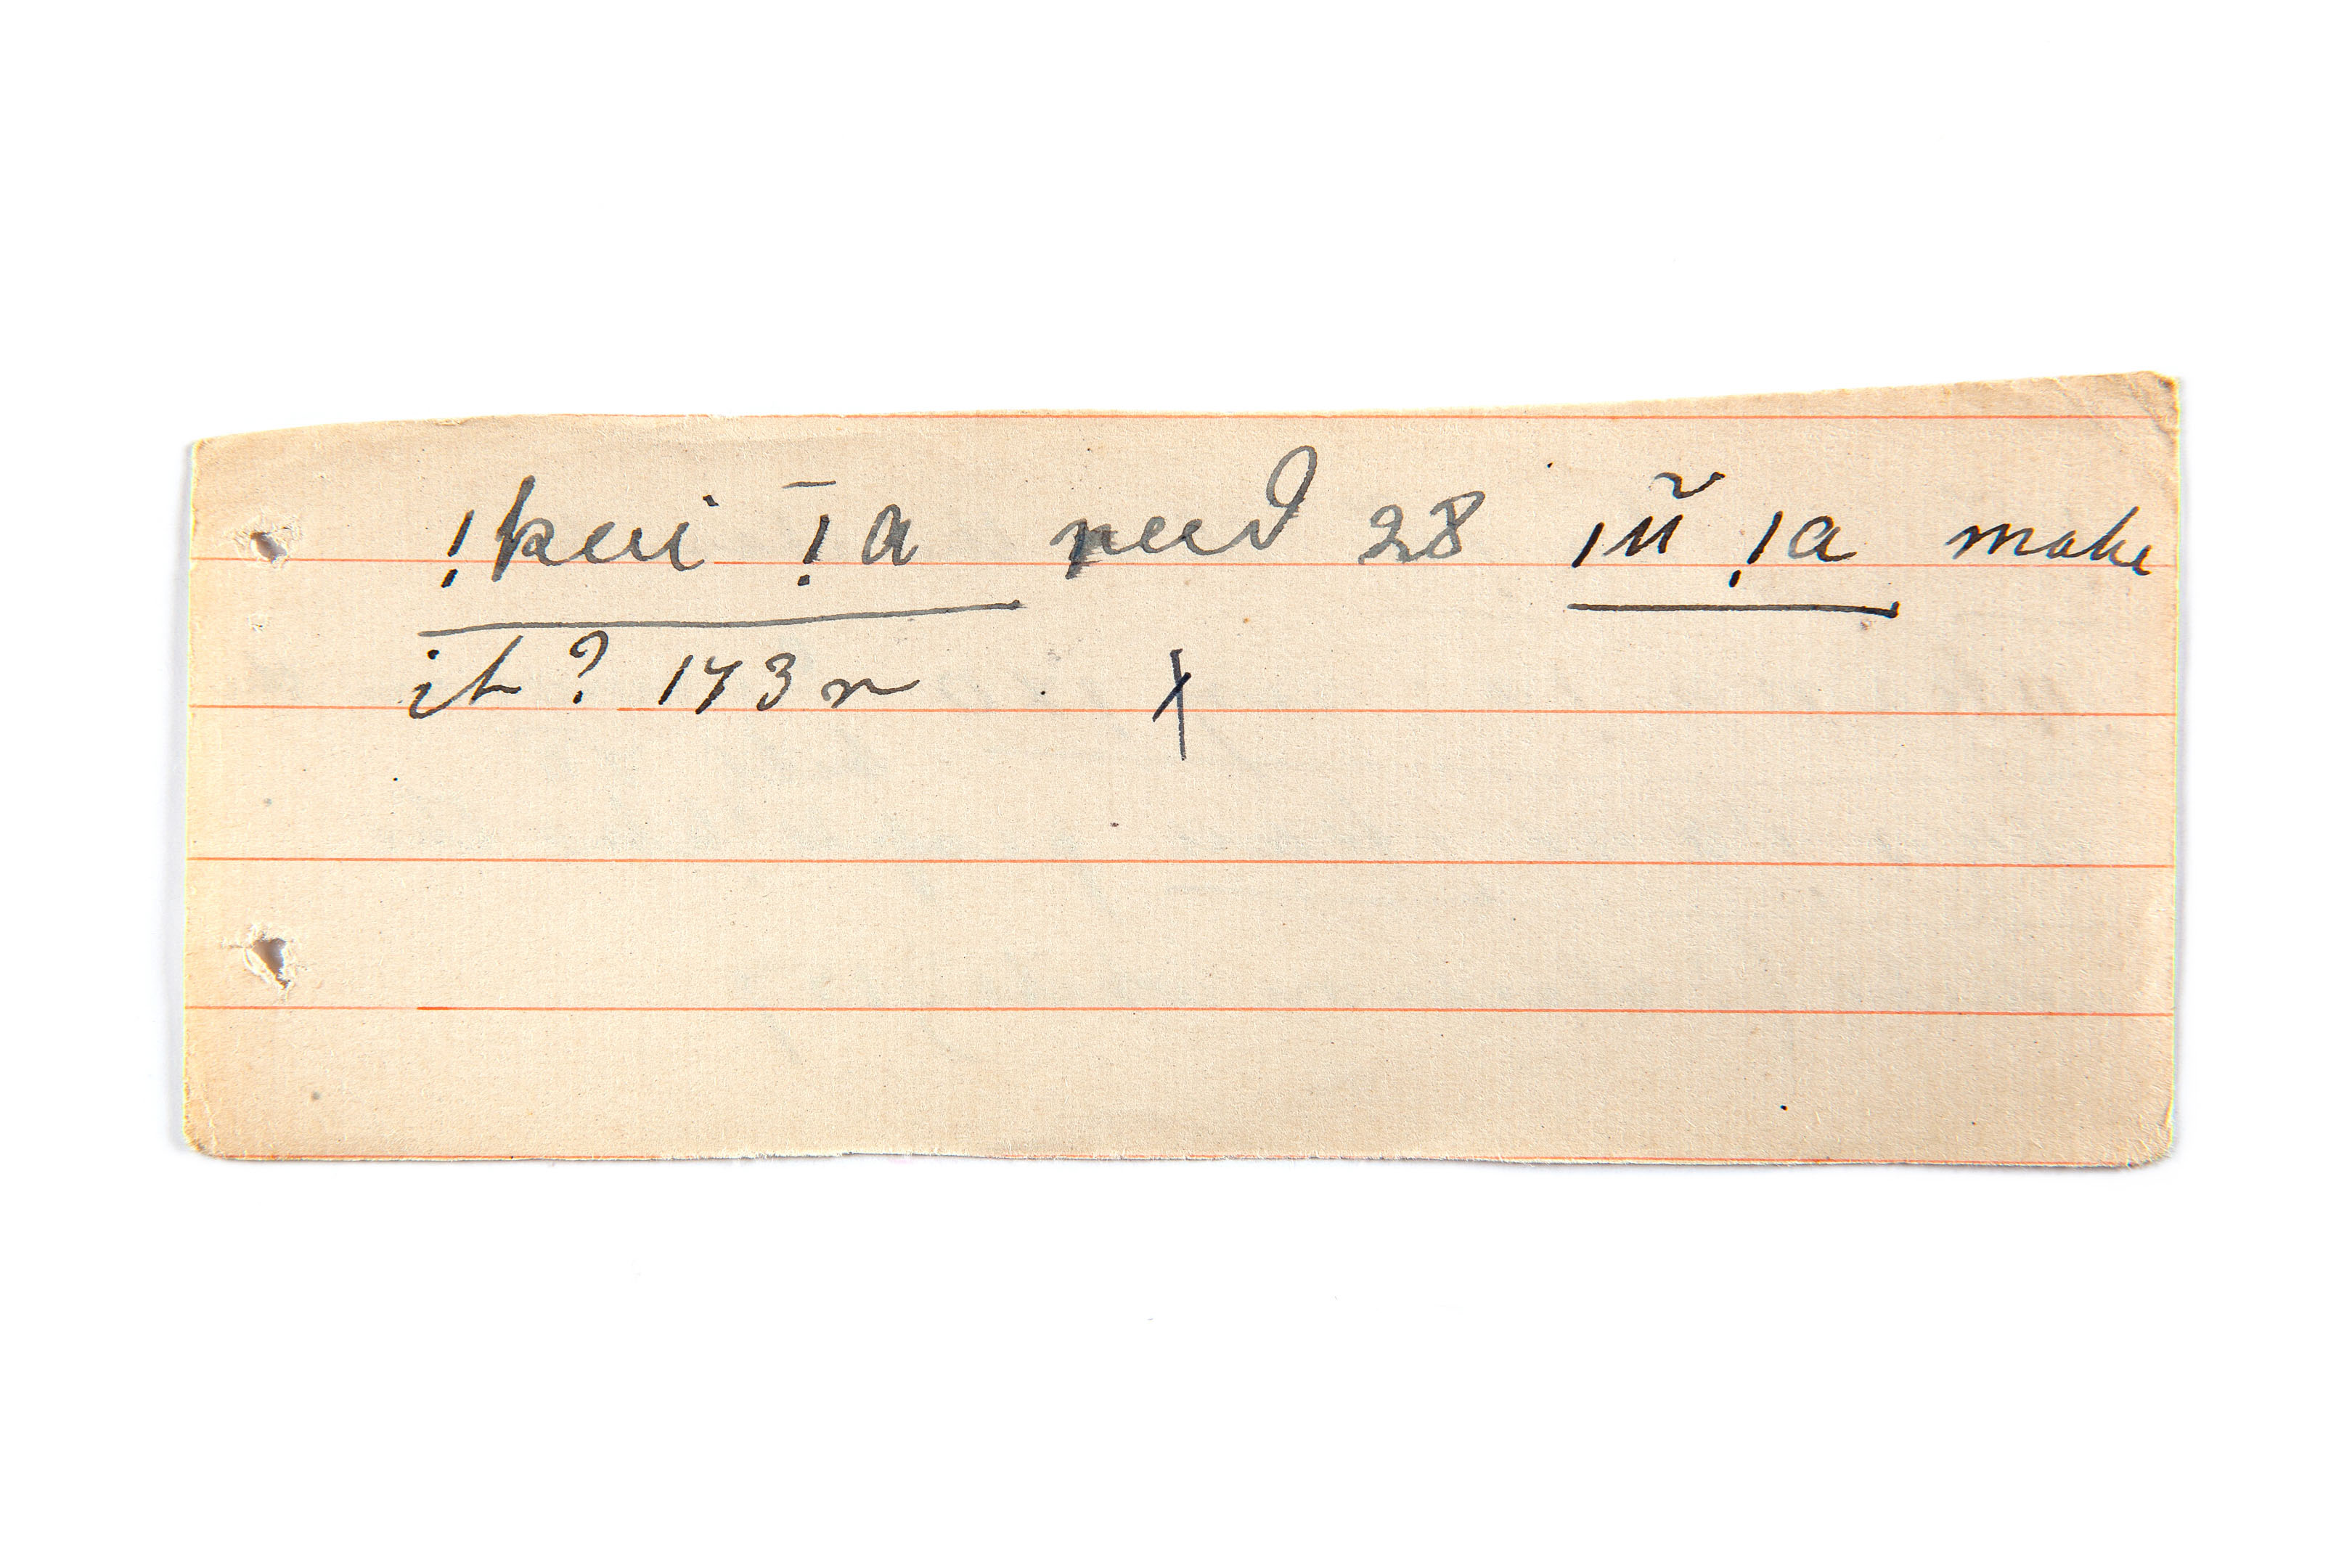 !kui !ā reed 28 /ũ !a make
it? 173 r X